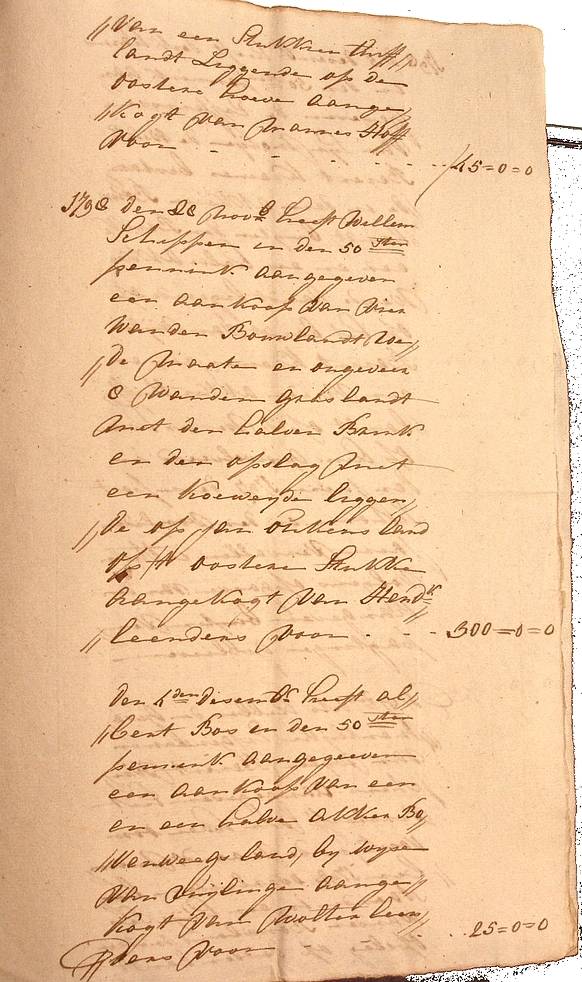 „van een Stukken turff„
landt Liggende op de
oostere hoeve aange„
„kogt van Mannes Hoff
voor - - - - 45=0=0
1798 den 28 Novb heeft Willem
Schippen in den 50 sten
pennink aangegeven
een aankoop van vier
wanden Bouwlandt We„
„de Maate en ongeveer
8 Wanden graslandt
met den halven Brink
en den opslag met
een koeweyde liggen„
„de op Jan ovikens land
op 't oostere Stukke
aangekogt van Hendk
„leenders voor - - - 300=0=0
den 4den desembr heeft al„
„bert Bos en den 50 sten
pennink aangegeven
een aankoop van een
en een halve akker Bo„
„venweegs land, by wyse
van Ruylinge aange„
kogt van Wolter leen„
„ders voor - - - 25=0=0